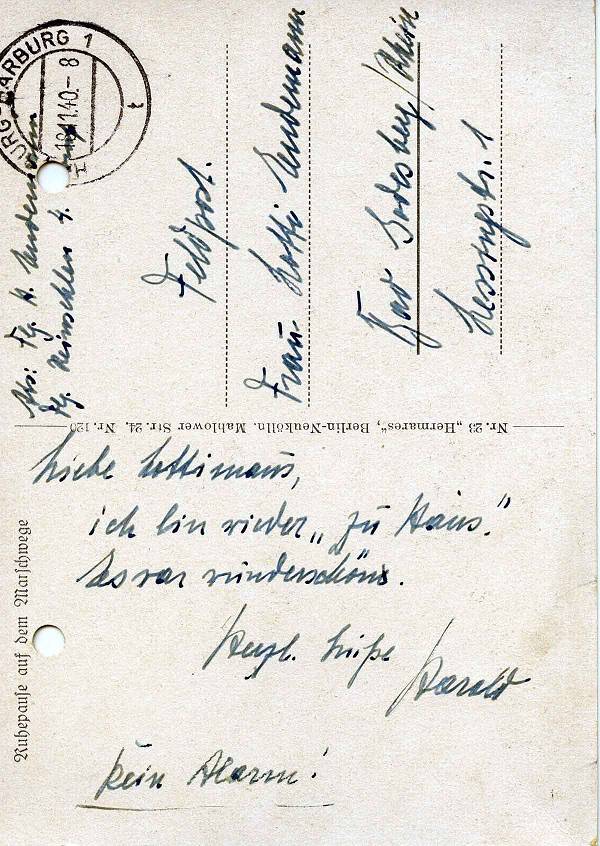 HARBURG 1
18.11.40.-8
t
Abs: Flg. H. Lindemann
Flg.
Feldpost.
Frau Lotti Lindemann
Bad Godesberg/Rhein
Lessingstr. 1
Nr. 23 „Hermares“, Berlin-Neukölln. Mahlower Str. 24, Nr. 120
Ruhepause auf dem Marſchwege
Liebe Lottimaus,
ich bin wieder „zu Haus.“
Es war wunderschön.
Herzl. Grüße
Harald
Kein Alarm!